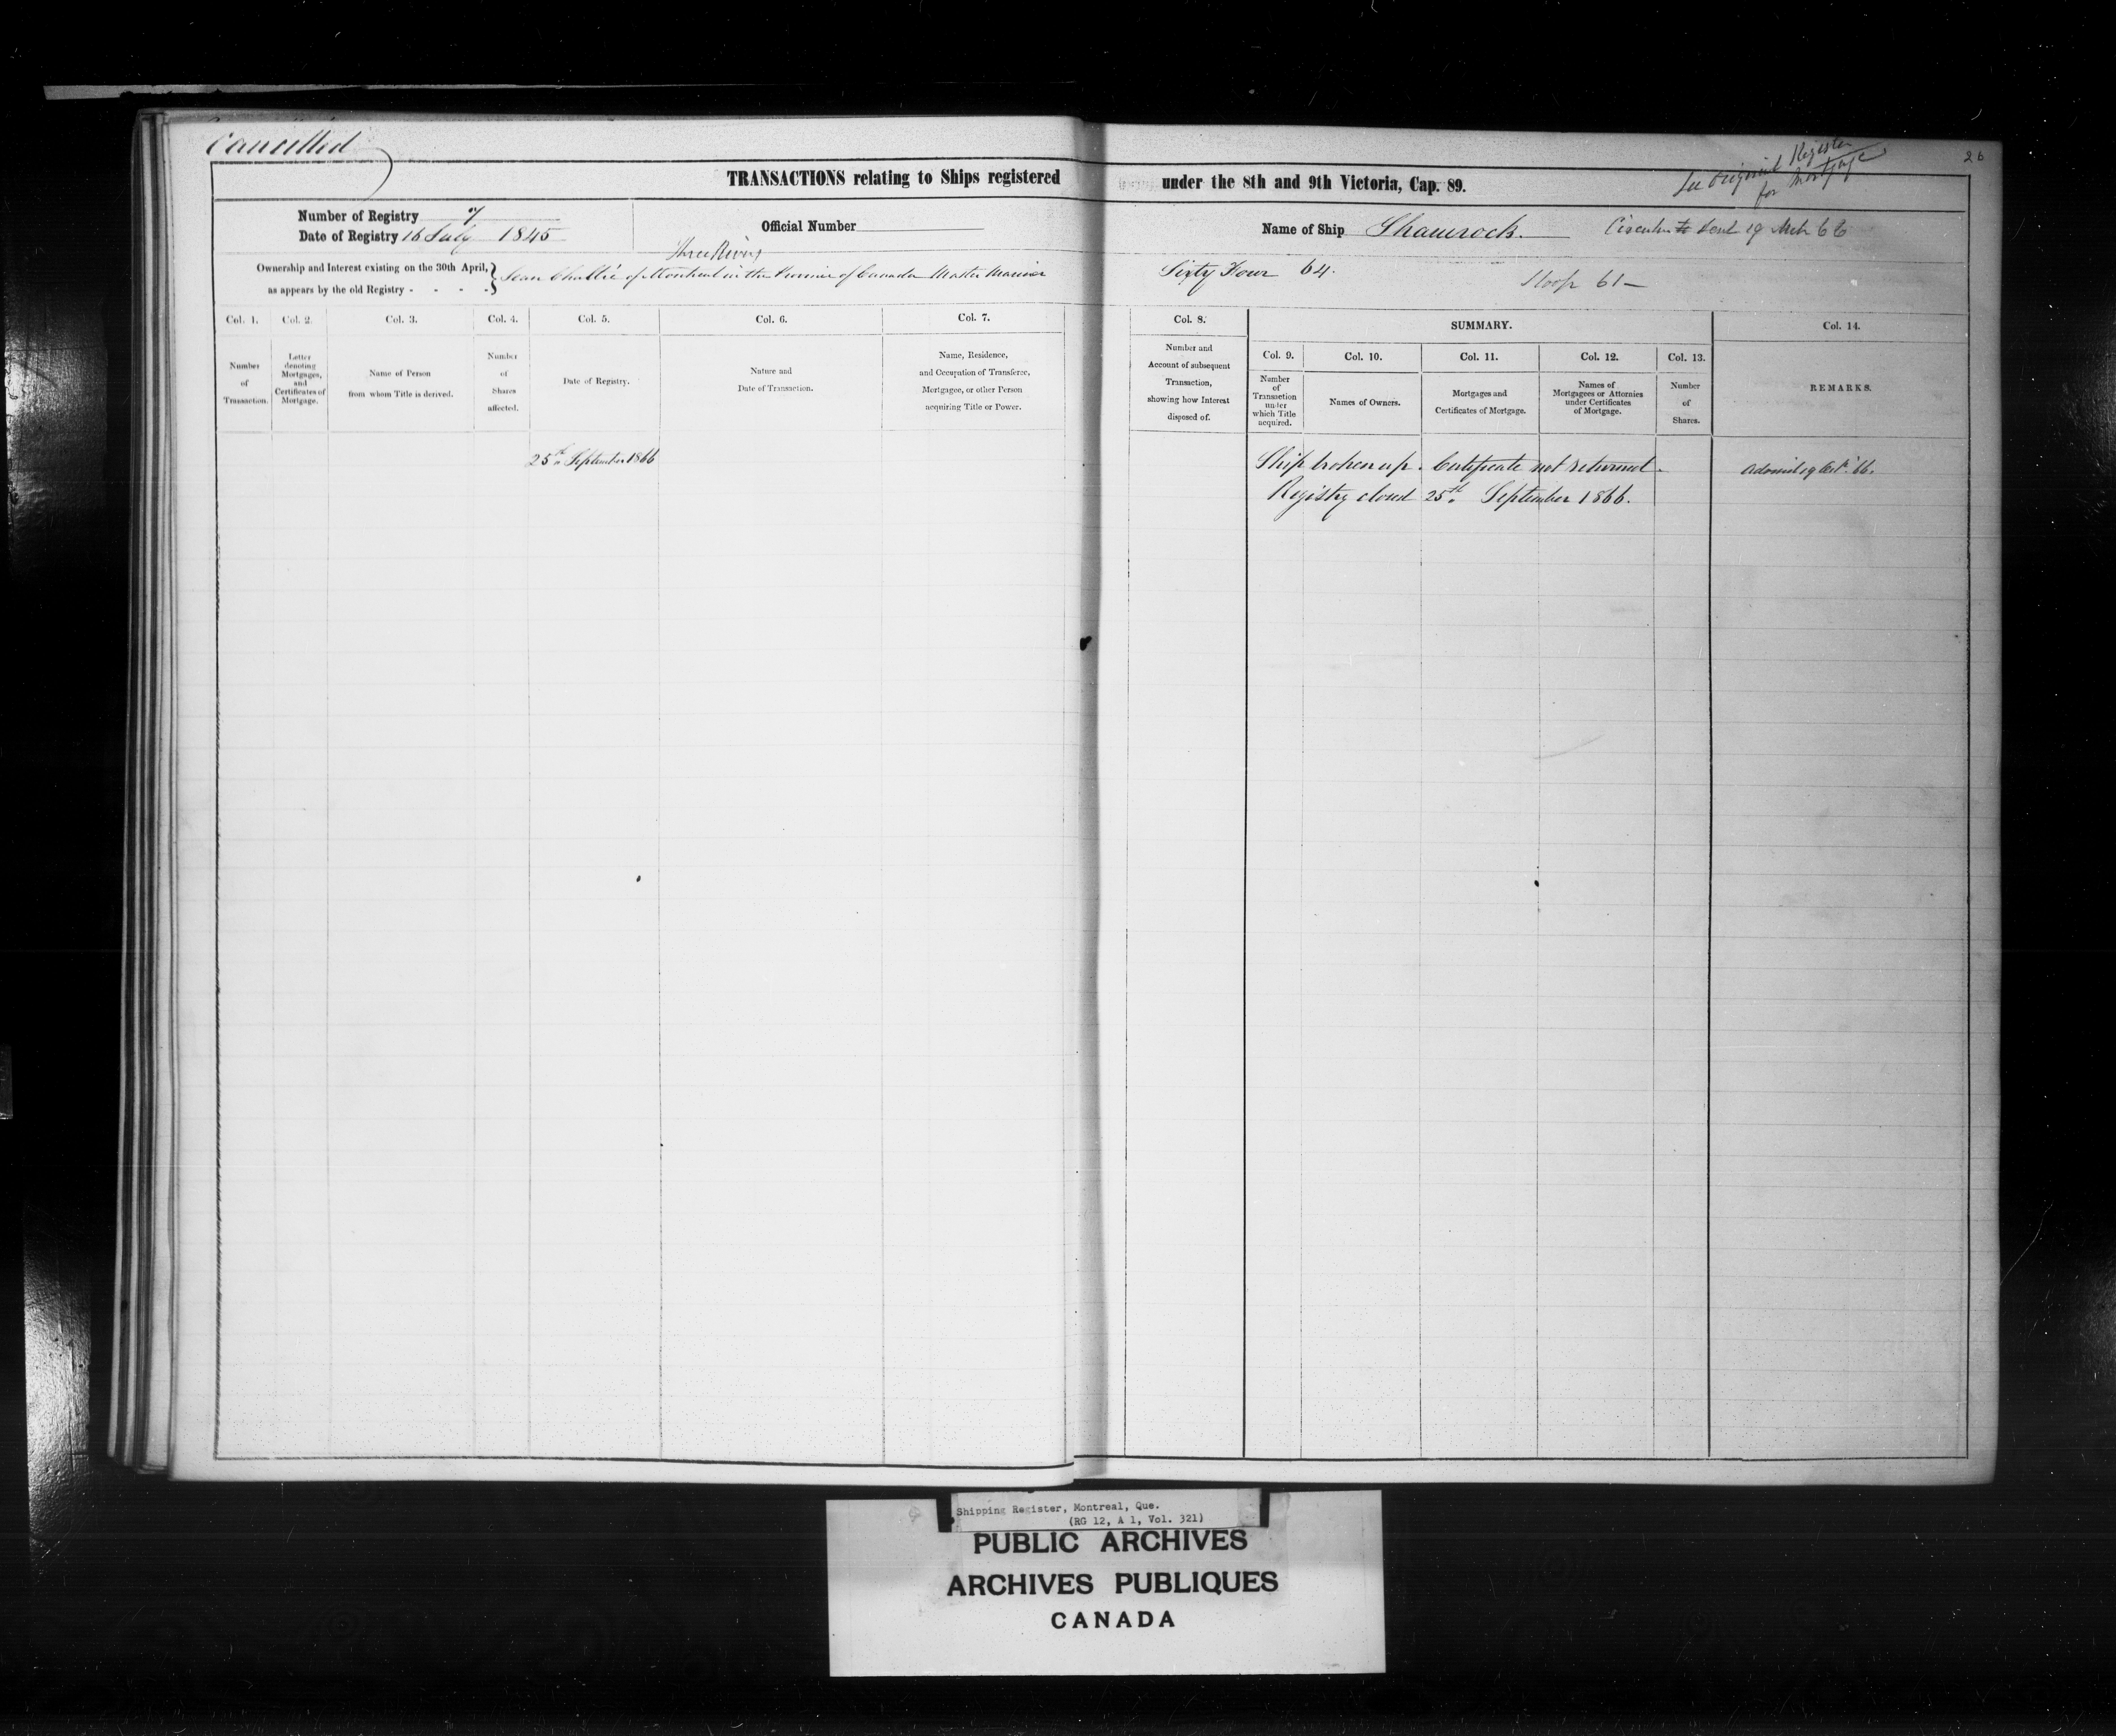 Cancelled
See Original Register
for Mortgage
26
TRANSACTIONS relating to Ships registered under the 8th and 9th Victoria, Cap. 89.
Number of Registry 7
Date of Registry 16 July 1845
Official Number
Name of Ship Shamrock.
sent 19 Mch 66
Three Rivers
Ownership and Interest existing on the 30th April,
as appears by the old Registry - - - -
Jean of Montreal in the Province of Canada Master Mariner
Sixty Four 64.
Sloop 61 —
Col. 1.
Col. 2.
Col. 3.
Col. 4.
Col. 5.
Col. 6.
Col. 7.
Col. 8.
SUMMARY.
Col. 14.
Number
of
Transaction.
Letter
denoting
Mortgages,
and
Certificates of
Mortgage.
Name of Person
from whom Title is derived.
Number
of
Shares
affected.
Date of Registry.
Nature and
Date of Transaction.
Name, Residence,
and Occupation of Transferee,
Mortgagee, or other Person
acquiring Title or Power.
Number and
Account of subsequent
Transaction,
showing how Interest
disposed of.
Col. 9.
Col. 10.
Col. 11.
Col. 12.
Col. 13.
Number
of
Transaction
under
which Title
acquired.
Names of Owners.
Mortgages and
Certificates of Mortgage.
Names of
Mortgagees or Attornies
under Certificates
of Mortgage.
Number
of
Shares.
REMARKS.
25th September 1866
Ship broken up. Certificate not returned.
Registry closed 25th September 1866.
Shipping Register, Montreal, Que.
(RG 12, A 1, Vol. 321)
PUBLIC ARCHIVES
ARCHIVES PUBLIQUES
CANADA